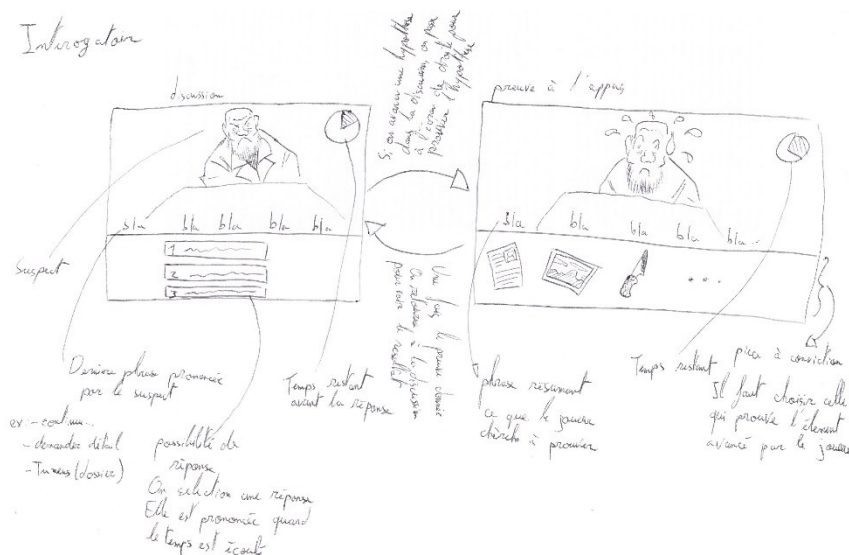 Interogatoire
discussion
bla bla bla bla bla
1
2
3
Suspect
Dernière phrase prononcée
par le suspect
ex: - continu...
- demander détail
- Tu mens (dossier)
possibilité de
réponse
On selection une réponse
Elle est prononcée quand
le temps est écoulé
Temps restant
avant la réponse
Si on avance une hypothèse
dans la discussion, on passe
à l'écran de droite pour
prouver l'hypothèse
Une fois la preuve donnée
On retourne à la discussion
pour voir le resultat
preuve à l'appuis
bla bla bla bla bla...
...
phrase résumant
ce que le joueur
cherche à prouver
Temps restant
pièce à conviction
Il faut choisir celle
qui prouve l'élément
avancé par le joueur